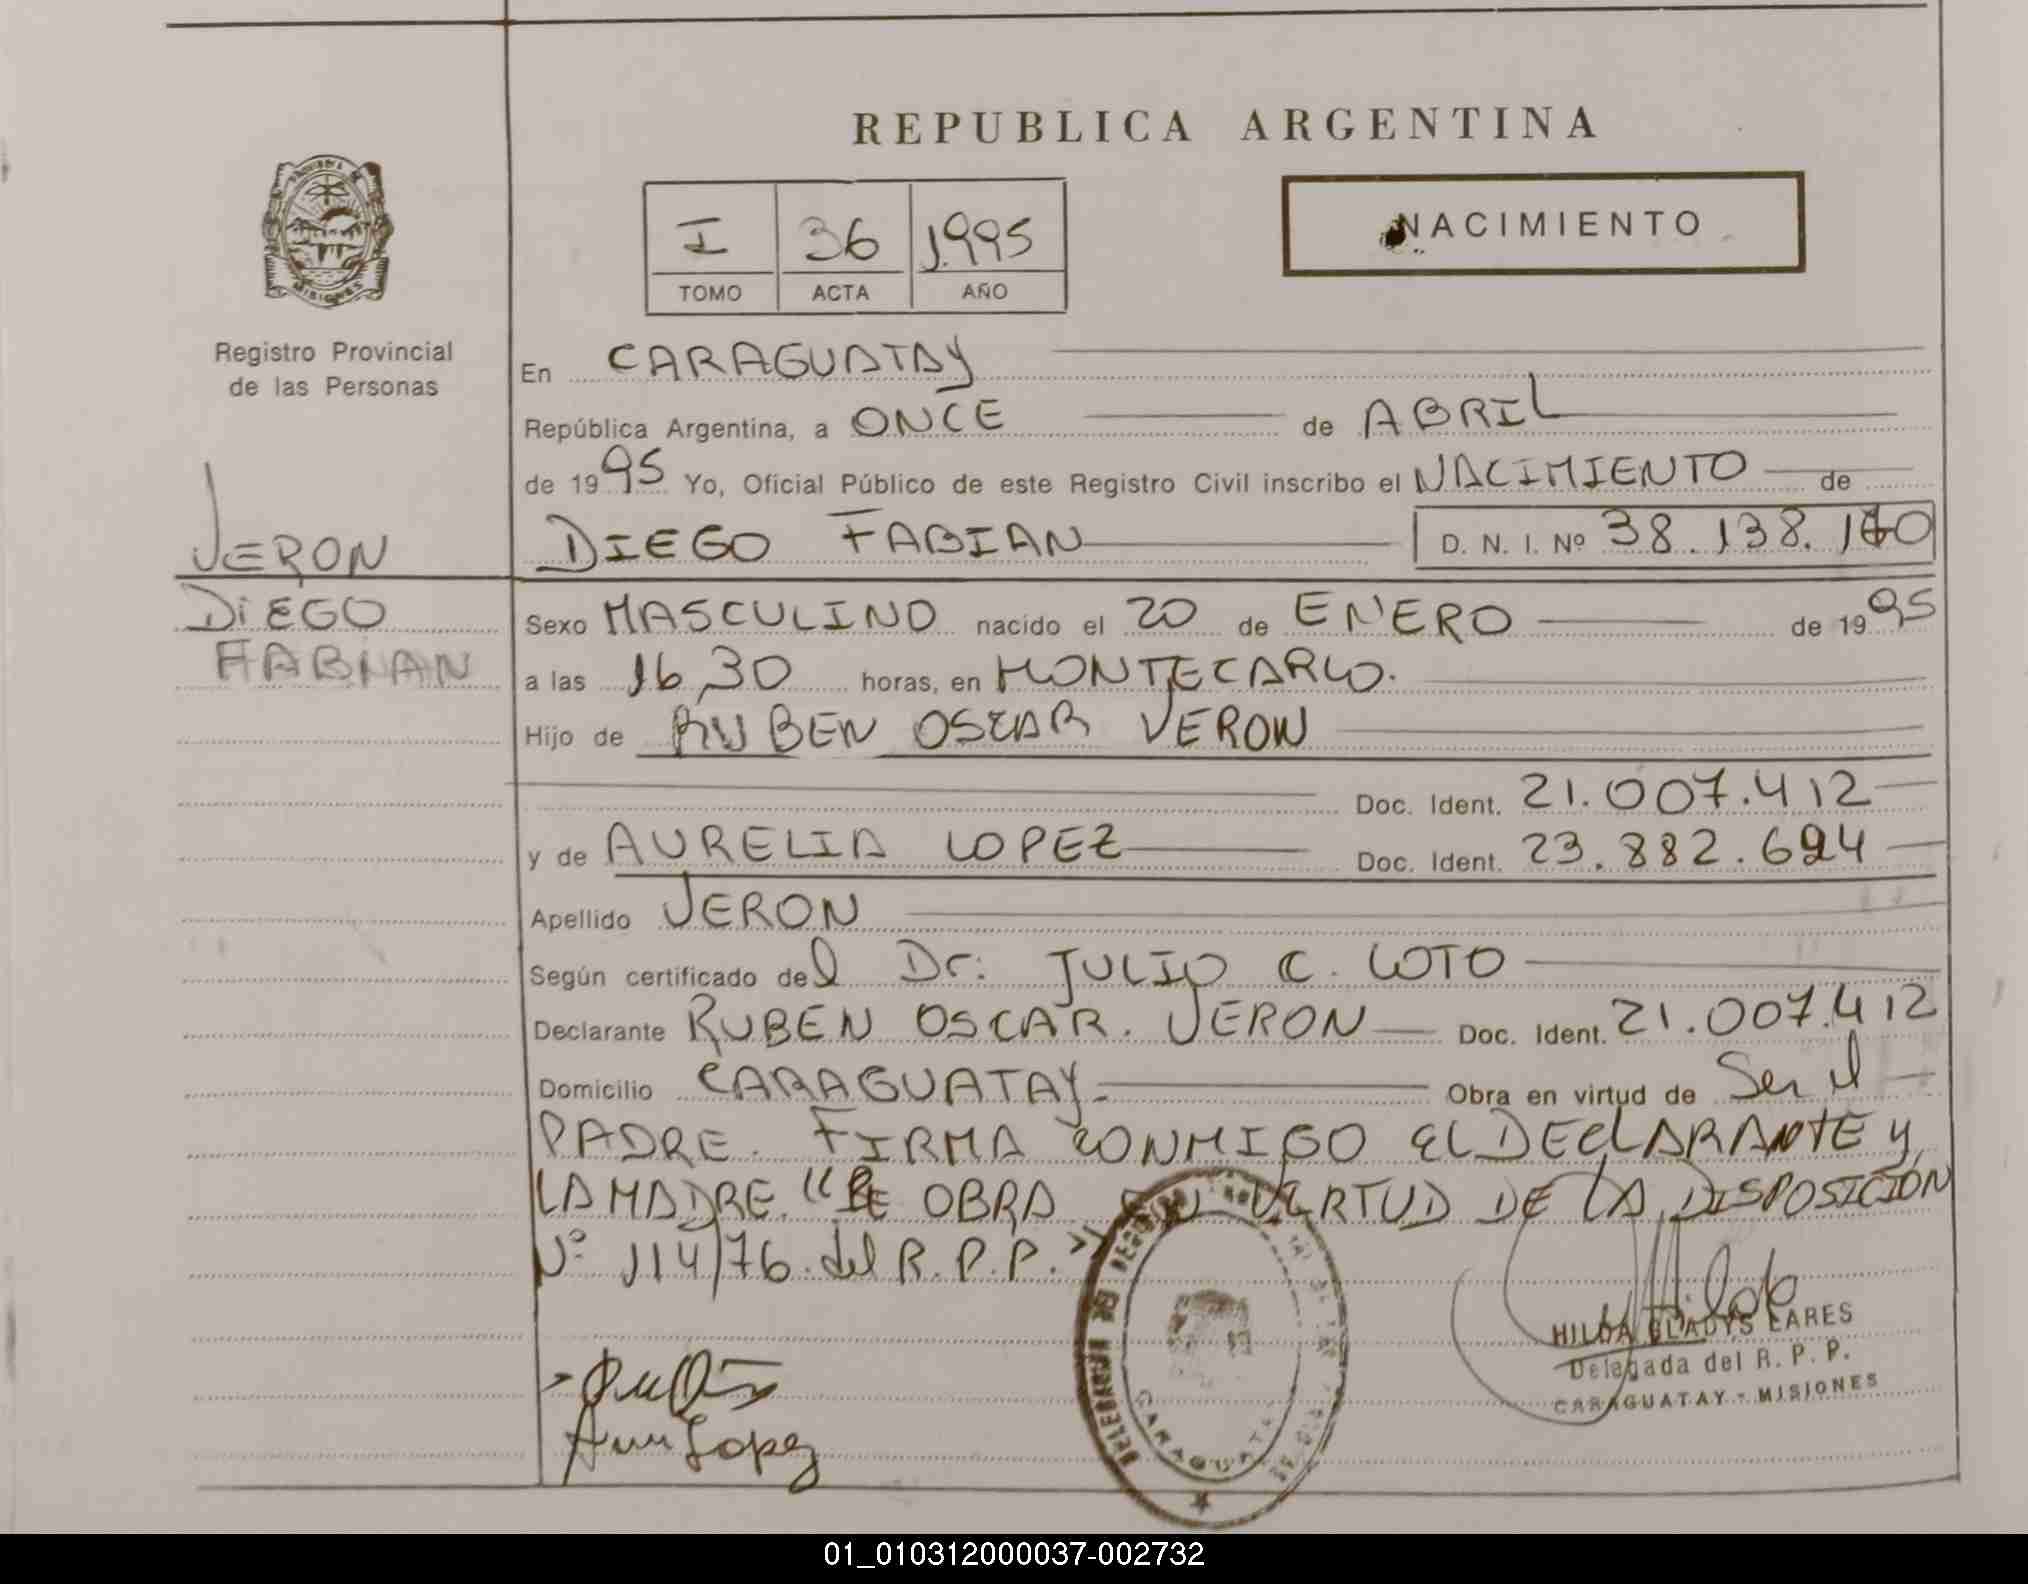 REPUBLICA ARGENTINA
PROVINCIA DE
MISIONES
I 36 1.995
TOMO ACTA AÑO
NACIMIENTO
Registro Provincial
de las Personas
VERON
DIEGO
FABIAN
En CARAGUATAY
República Argentina, a ONCE de ABRIL
de 1995 Yo, Oficial Público de este Registro Civil inscribo el NACIMIENTO de
DIEGO FABIAN D. N. I. Nº 38.138.
Sexo MASCULINO nacido el 20 de ENERO de 1995
a las 16,30 horas, en MONTECARLO.
Hijo de RUBEN OSCAR VERON
Doc. Ident. 21.007.412
y de AURELIA LOPEZ Doc. Ident. 23.882.624
Apellido VERON
Según certificado del Dr: JULIO C. LOTO
Declarante RUBEN OSCAR. VERON Doc. Ident. 21.007.412
Domicilio CARAGUATAY- Obra en virtud de Ser el
PADRE. FIRMA CONMIGO EL DECLARANTE y
LA MADRE. "SE OBRA EN VIRTUD DE LA DISPOSICION
Nº 114/76. del R.P.P."
Lopez
DELEGACION DE
CARAGUATAY
HILDA GLADYS LARES
Delegada del R. P. P.
CARAGUATAY - MISIONES
01_010312000037-002732